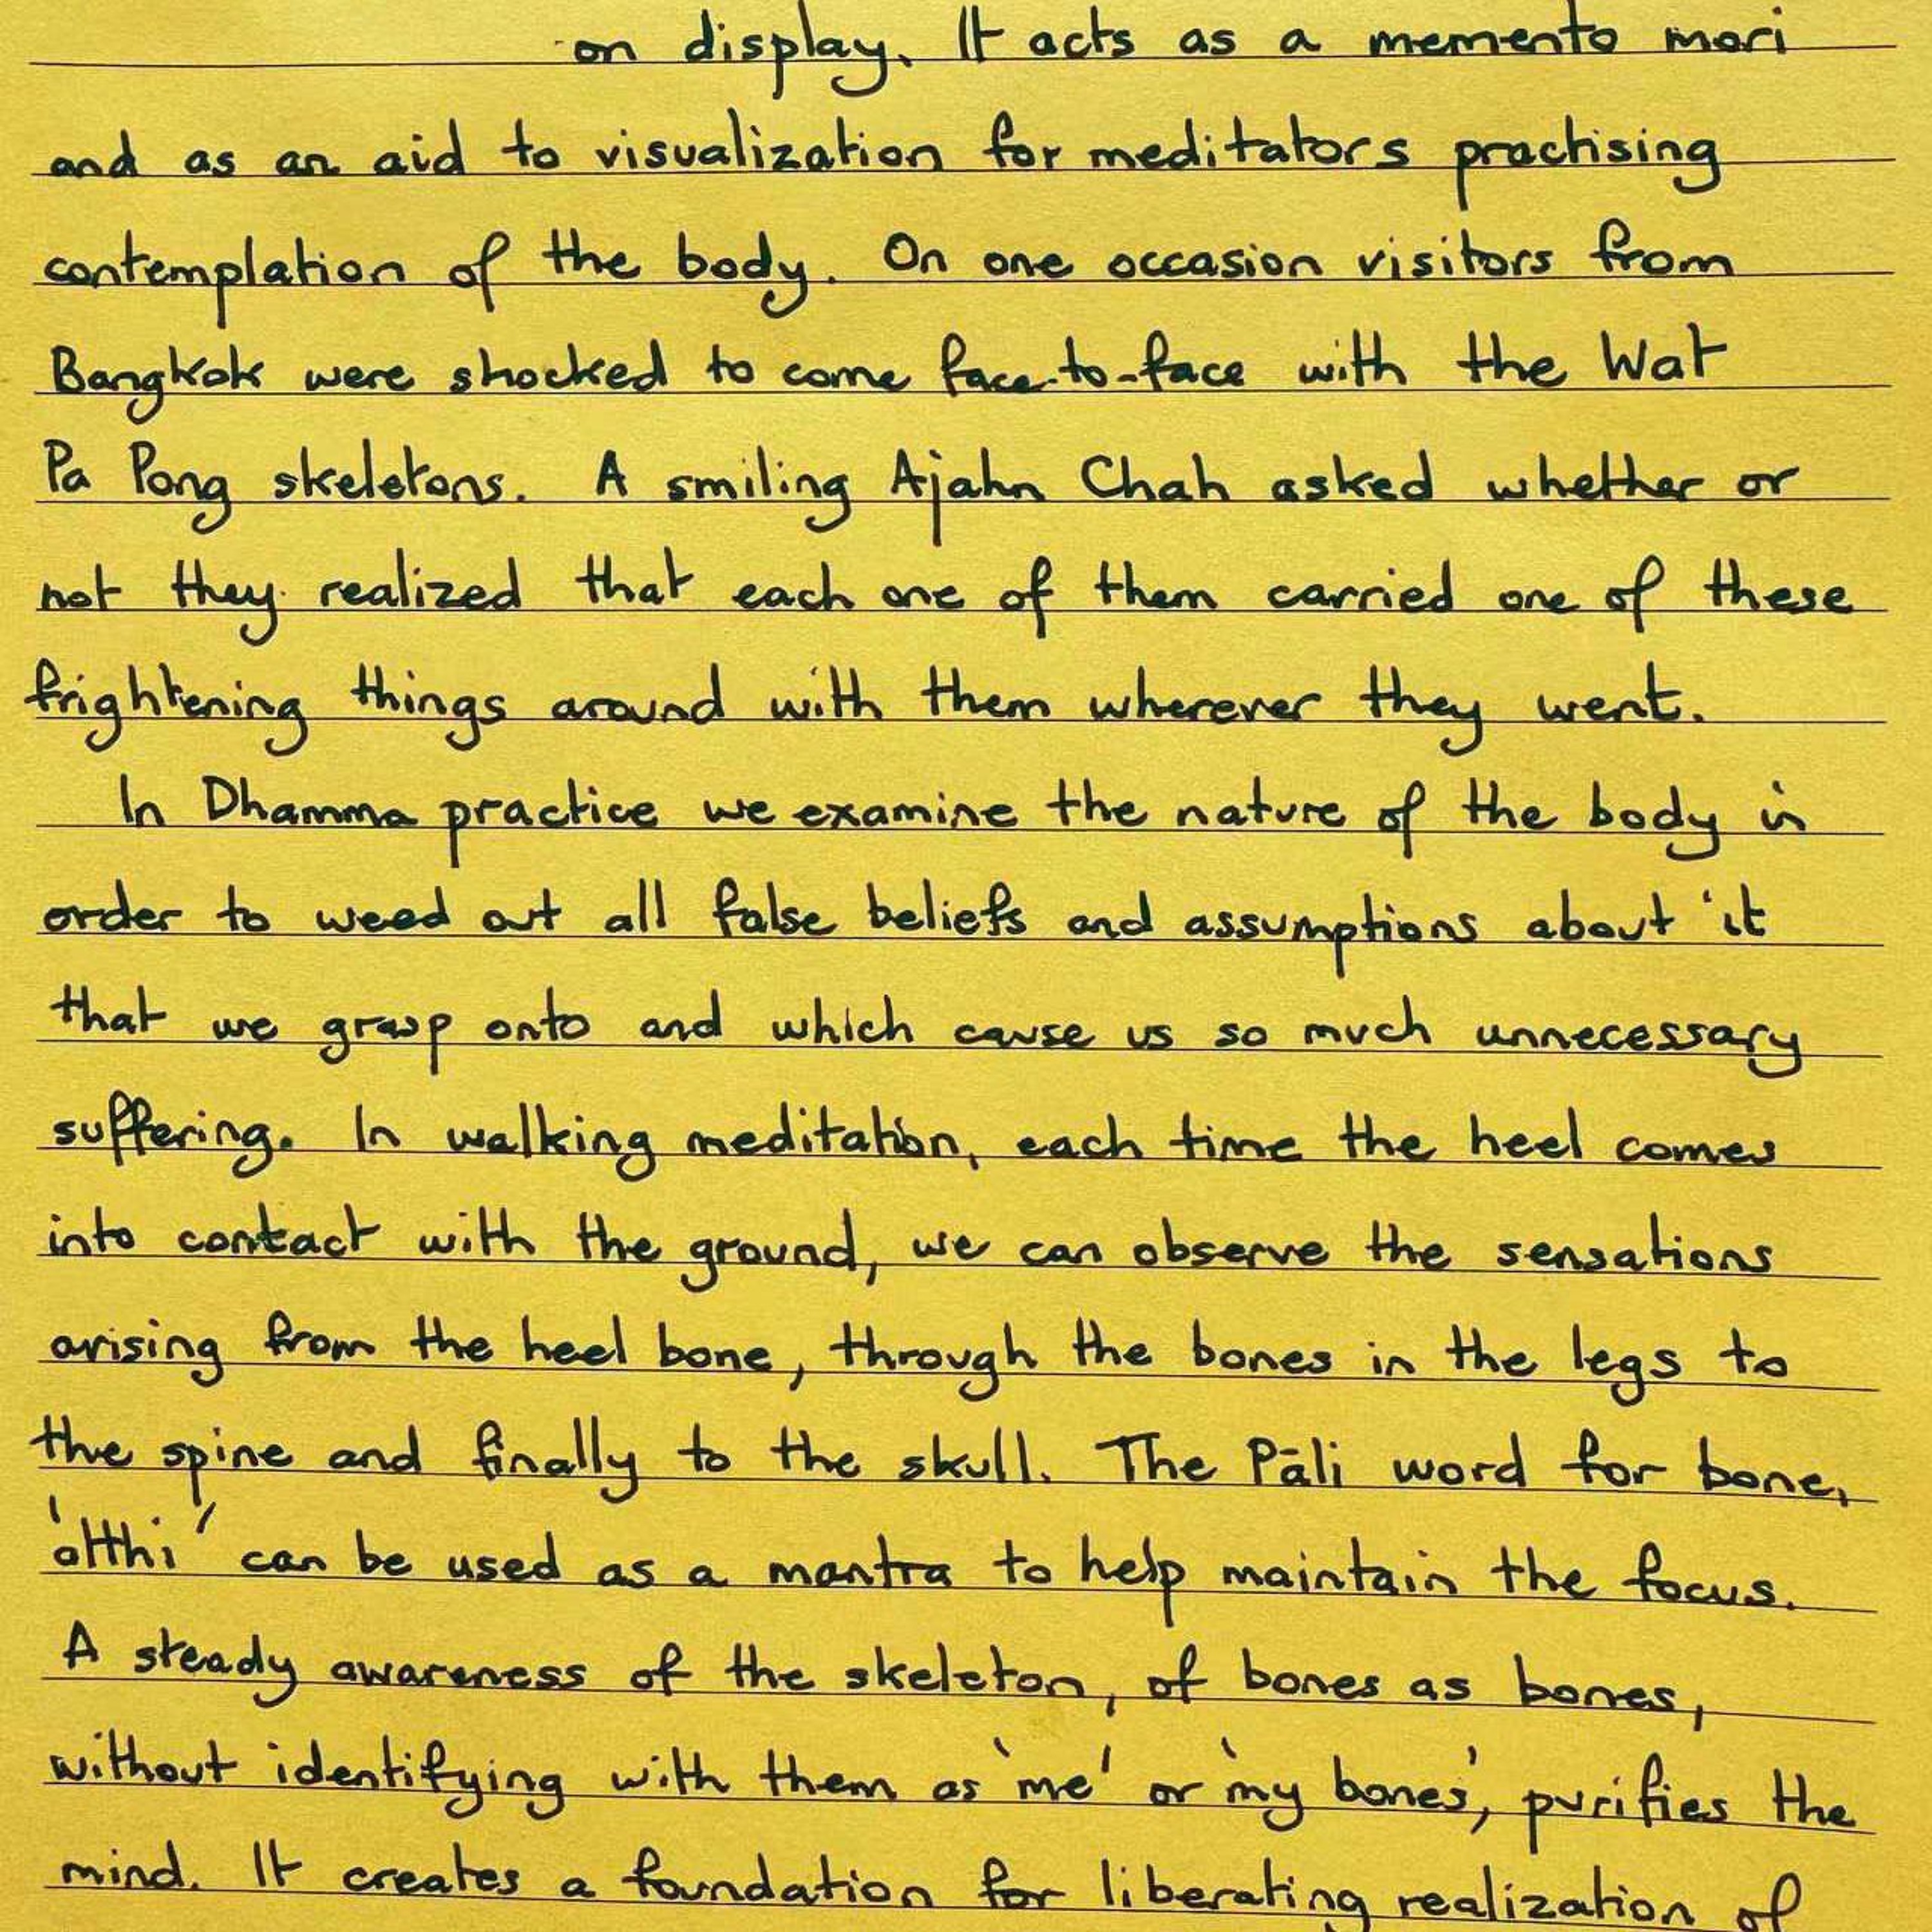 on display. It acts as a memento mori
and as an aid to visualization for meditators practising
contemplation of the body. On one occasion visitors from
Bangkok were shocked to come face-to-face with the Wat
Pa Pong skeletons. A smiling Ajahn Chah asked whether or
not they realized that each one of them carried one of these
frightening things around with them wherever they went.
In Dhamma practice we examine the nature of the body in
order to weed out all false beliefs and assumptions about it
that we grasp onto and which cause us so much unnecessary
suffering. In walking meditation, each time the heel comes
into contact with the ground, we can observe the sensations
arising from the heel bone, through the bones in the legs to
the spine and finally to the skull. The Pāli word for bone,
'atthi' can be used as a mantra to help maintain the focus.
A steady awareness of the skeleton, of bones as bones,
without identifying with them as 'me' or 'my bones', purifies the
mind. It creates a foundation for liberating realization of